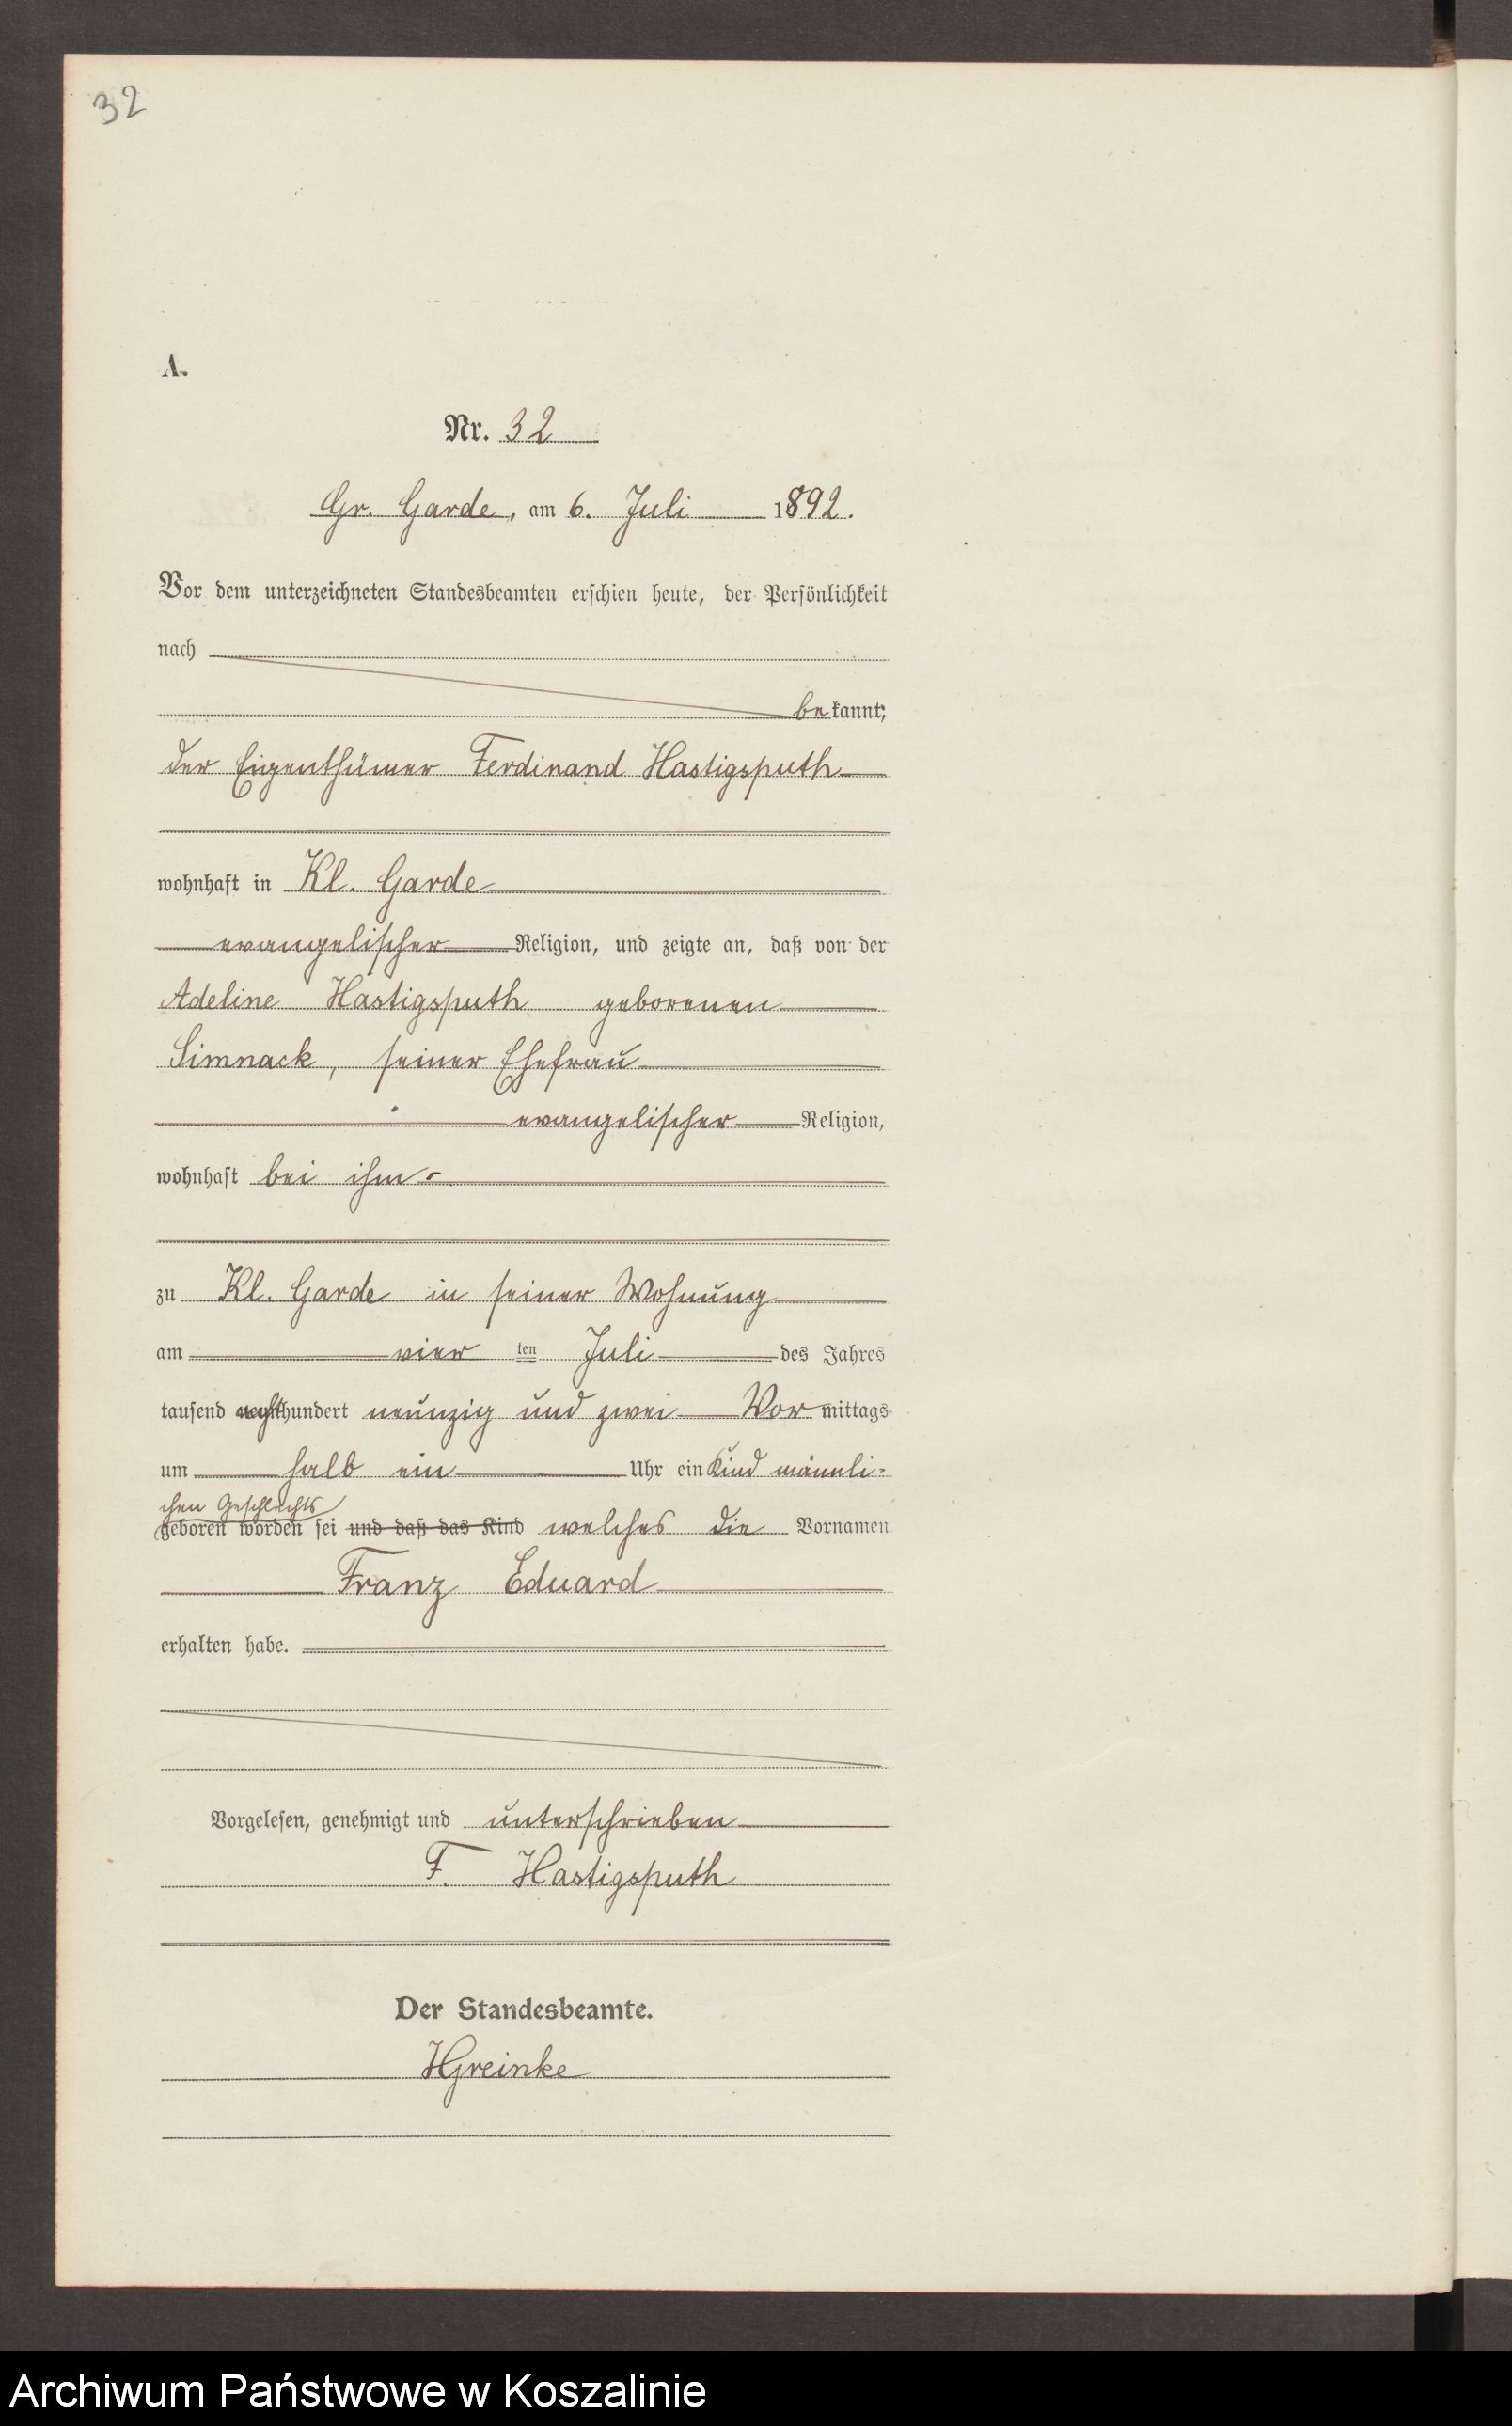 32
A.
Nr. 32
Gr. Garde, am 6. Juli 1892.
Vor dem unterzeichneten Standesbeamten erschien heute, der Persönlichkeit
nach
bekannt,
der Eigenthümer Ferdinand Hastigsputh
wohnhaft in Kl. Garde
evangelischer Religion, und zeigte an, daß von der
Adeline Hastigsputh geborenen
Simnack, seiner Ehefrau
evangelischer Religion,
wohnhaft bei ihm
zu Kl. Garde in seiner Wohnung
am vier ten Juli des Jahres
tausend achthundert neunzig und zwei Vormittags
um halb ein Uhr ein Kind männli-
chen Geschlechts
geboren worden sei und daß das Kind welches die Vornamen
Franz Eduard
erhalten habe.
Vorgelesen, genehmigt und unterschrieben
F. Hastigsputh
Der Standesbeamte.
HGreinke
Archiwum Państwowe w Koszalinie